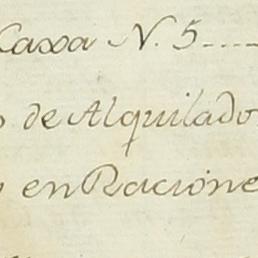 Caxa N. 5....
de Alquilado
en Racione